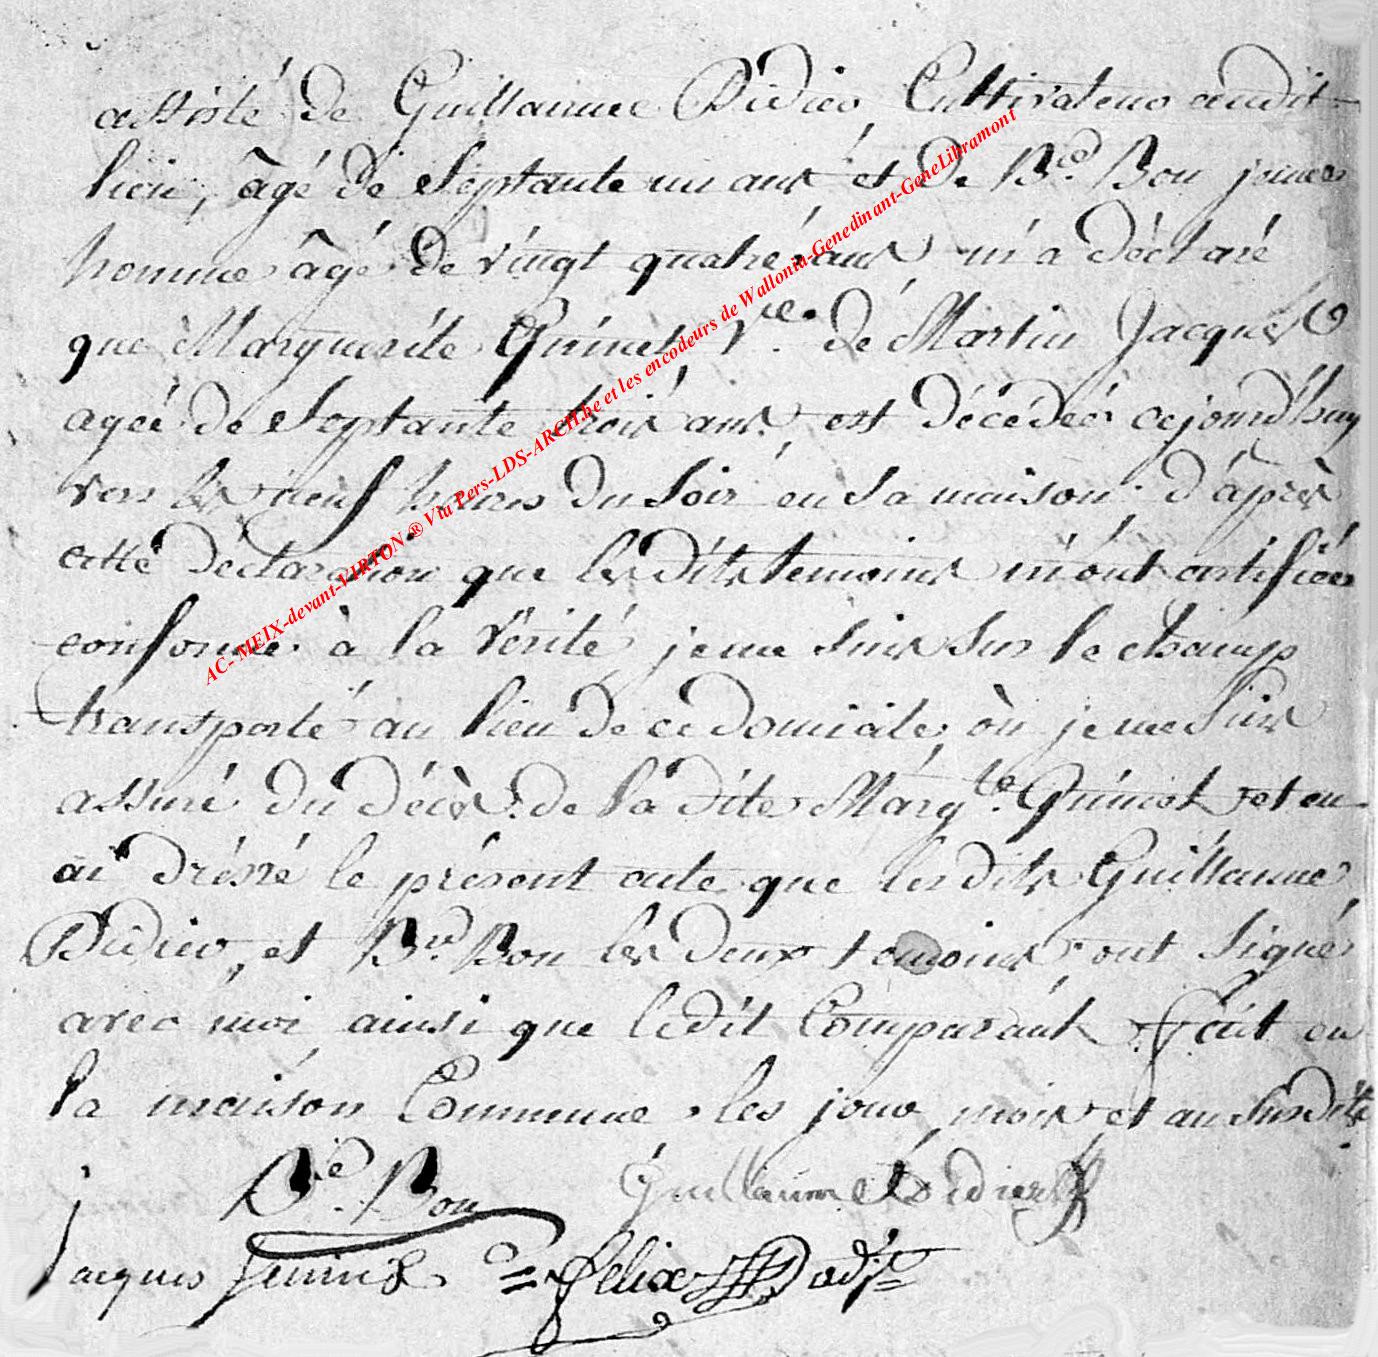 assisté de Guillaume Didier, Cultivateur audit
lieu, âgé de Septante un ans, et de B.ed Bon jeune
homme âgé de vingt quatre ans, m'a déclaré
que Marguerite Guinet V.ve de Martin Jacques
agée de Septante trois ans, est décédeé cejourd'huy
vers les neuf heures du Soir en sa maison; d'après
cette déclaration que lesdits temoins m'ont certifiée
conforme à la Vérité, je me suis sur le champ
transporté au lieu de ce domicile, où je me suis
assuré du décès de la dite Marg.te Guinet et en
ai dréssé le présent acte que lesdits Guillaume
Didier, et B.rd Bon les deux temoins, ont Signé
avec moi ainsi que ledit Comparant. fait en
la maison Commune les jour, mois et an Susdits.
B.é Bon Guillaume Didier
jacques Guinet felix adj.t
AC- MEIX-devant-VIRTON ® Via Pers-LDS-ARCH.be et les encodeurs de Wallonia-Genedinant-GeneLibramont